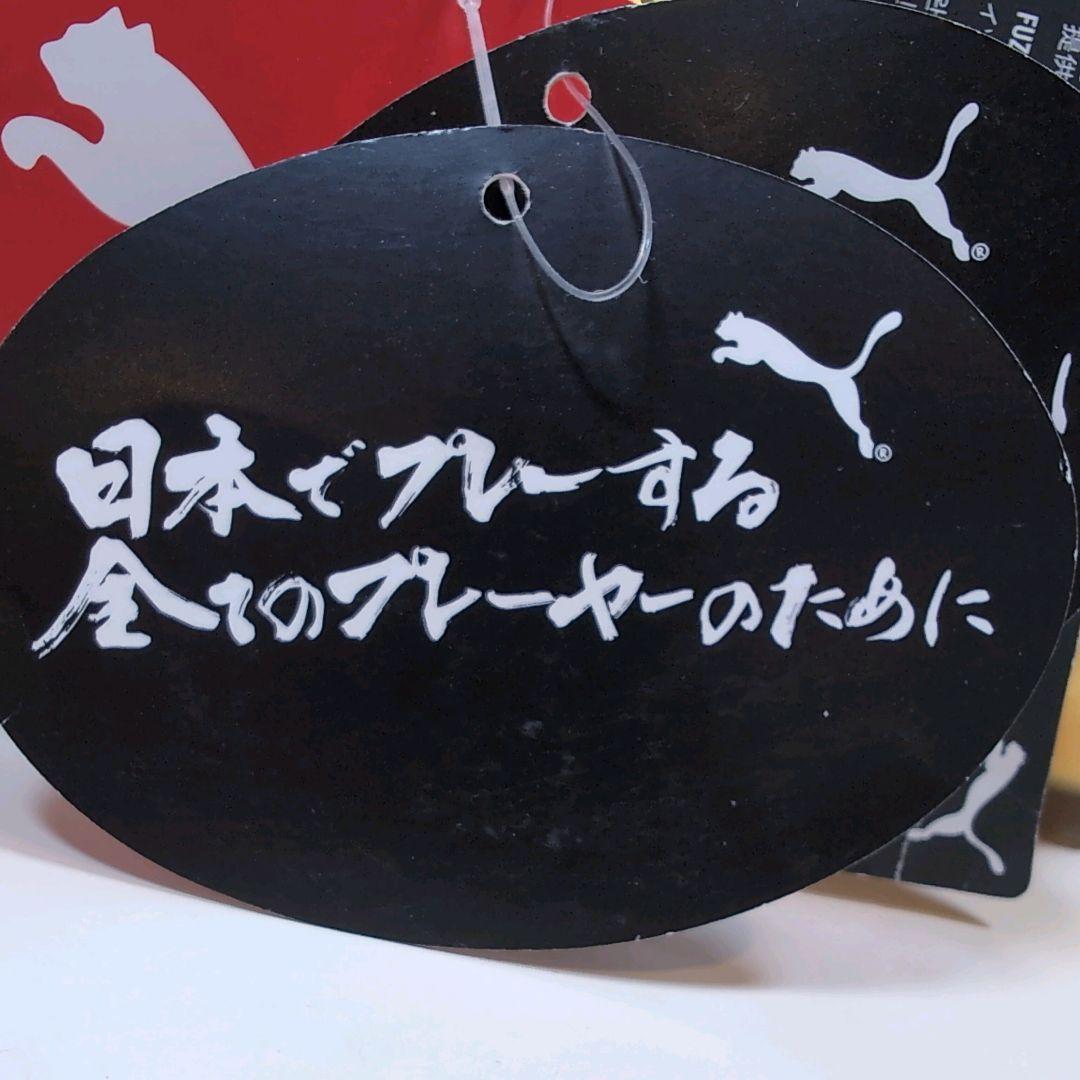 日本でプレーする
全てのプレーヤーのために
FUZ
提供